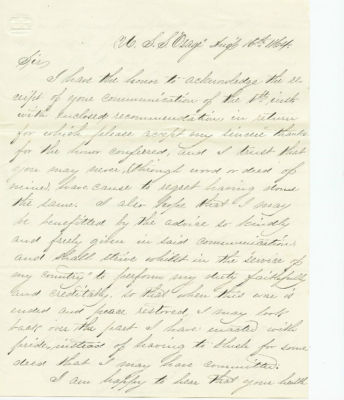 U. S. S. Osage Augt 16th 1864.
Sir,
I have the honor to acknowledge the re-
ceipt of your communication of the 8th inst
with enclosed recommendation in return
for which please accept my sincere thanks
for the honor conferred, and I trust that
you may never, through word or deed of
mine, have cause to regret having done
the same. I also hope that I may
be benefitted by the advice so kindly
and freely given in said communication
and shall strive whilst in the service of
my country to perform my duty faithfully
and creditably, so that when this war is
ended and peace restored, I may look
back over the part I have enacted with
pride, instead of having to blush for some
deed that I may have committed.
I am happy to hear that your health